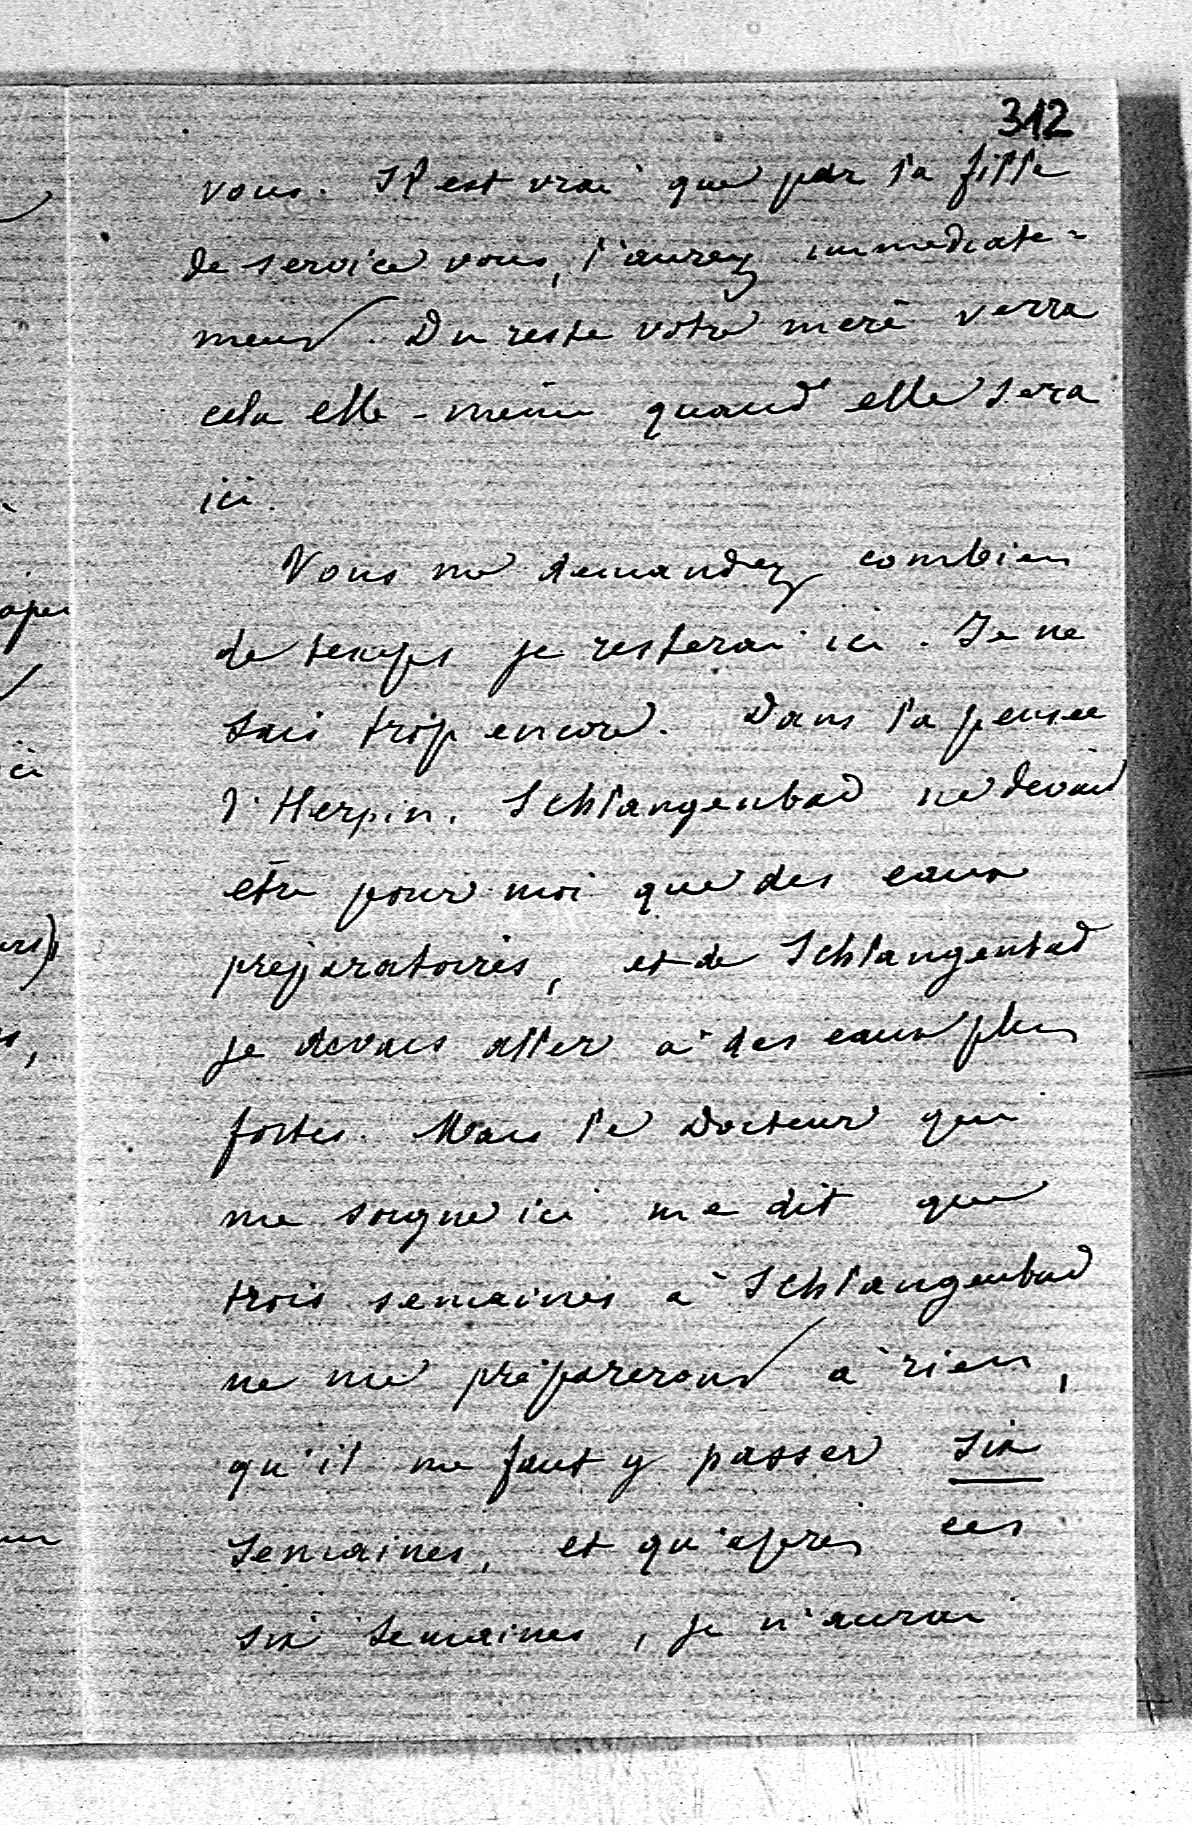 312
vous. Il est vrai que par la fille
de service vous, l'aurez immediate-
ment. Du reste votre mère verra
cela elle-même quand elle sera
ici.
Vous me demandez combien
de temps je resterai ici. Je ne
sais trop encore. Dans la pensée
d'Herpin, Schlangenbad ne devait
être pour moi que des eaux
préparatoires, et de Schlangenbad
je devais aller à des eaux plus
fortes. Mais le Docteur qui
me soigne ici me dit que
trois semaines à Schlangenbad
ne me prépareront à rien,
qu'il me faut y passer six
semaines, et qu'après ces
six semaines, je n'aurai